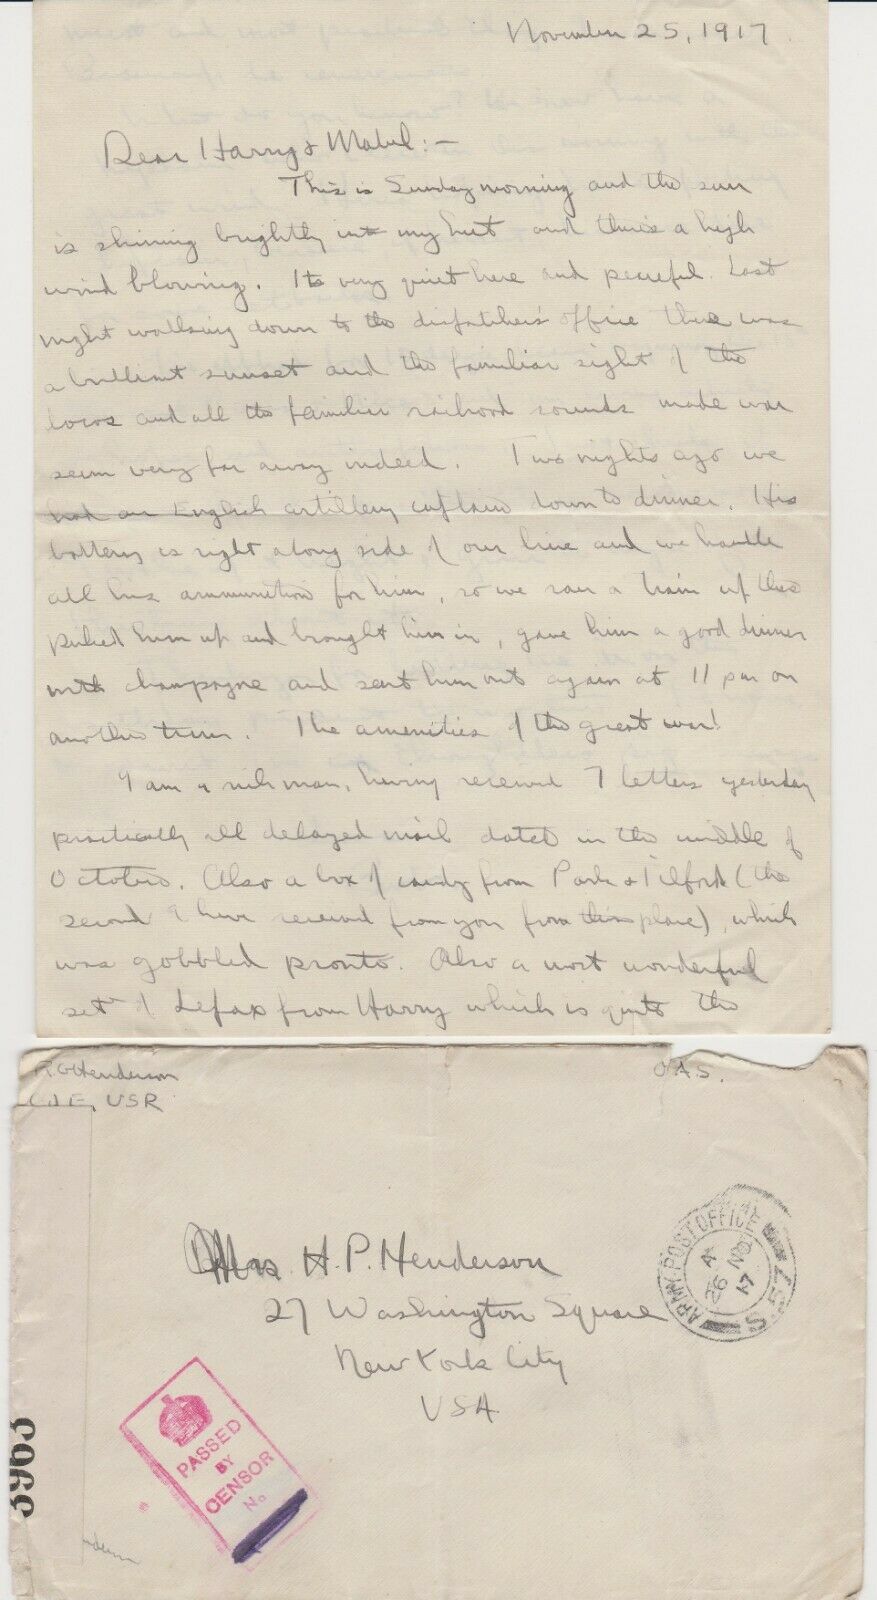 November 25, 1917.
Dear Harry & Mabel:-
This is Sunday morning and the sun
is shining brightly into my hut and there's a high
wind blowing. Its very quiet here and peaceful. Last
night walking down to the dispatchers office there was
a brilliant sunset and the familiar sight of the
locos and all the familiar railroad sounds made war
seem very far away indeed. Two nights ago we
had an English artillery captain down to dinner. His
battery is right along side of our line and we handle
all his ammunition for him, so we ran a train up there
picked him up and brought him in, gave him a good dinner
with champagne and sent him out again at 11 pm on
another train. The amenities of the great war!
I am a rich man, having received 7 letters yesterday
practically all delayed mail dated in the middle of
October. Also a box of candy from Park & Tilford (the
second I have received from you from this place), which
was gobbled pronto. Also a most wonderful
set of Lefax from Harry which is quite the
R G Henderson
USR
O.A.S.
Mrs. H. P. Henderson
27 Washington Square
New York City
USA
ARMY POST OFFICE S.75
A
26 NO
17
PASSED
BY
CENSOR
No
3963